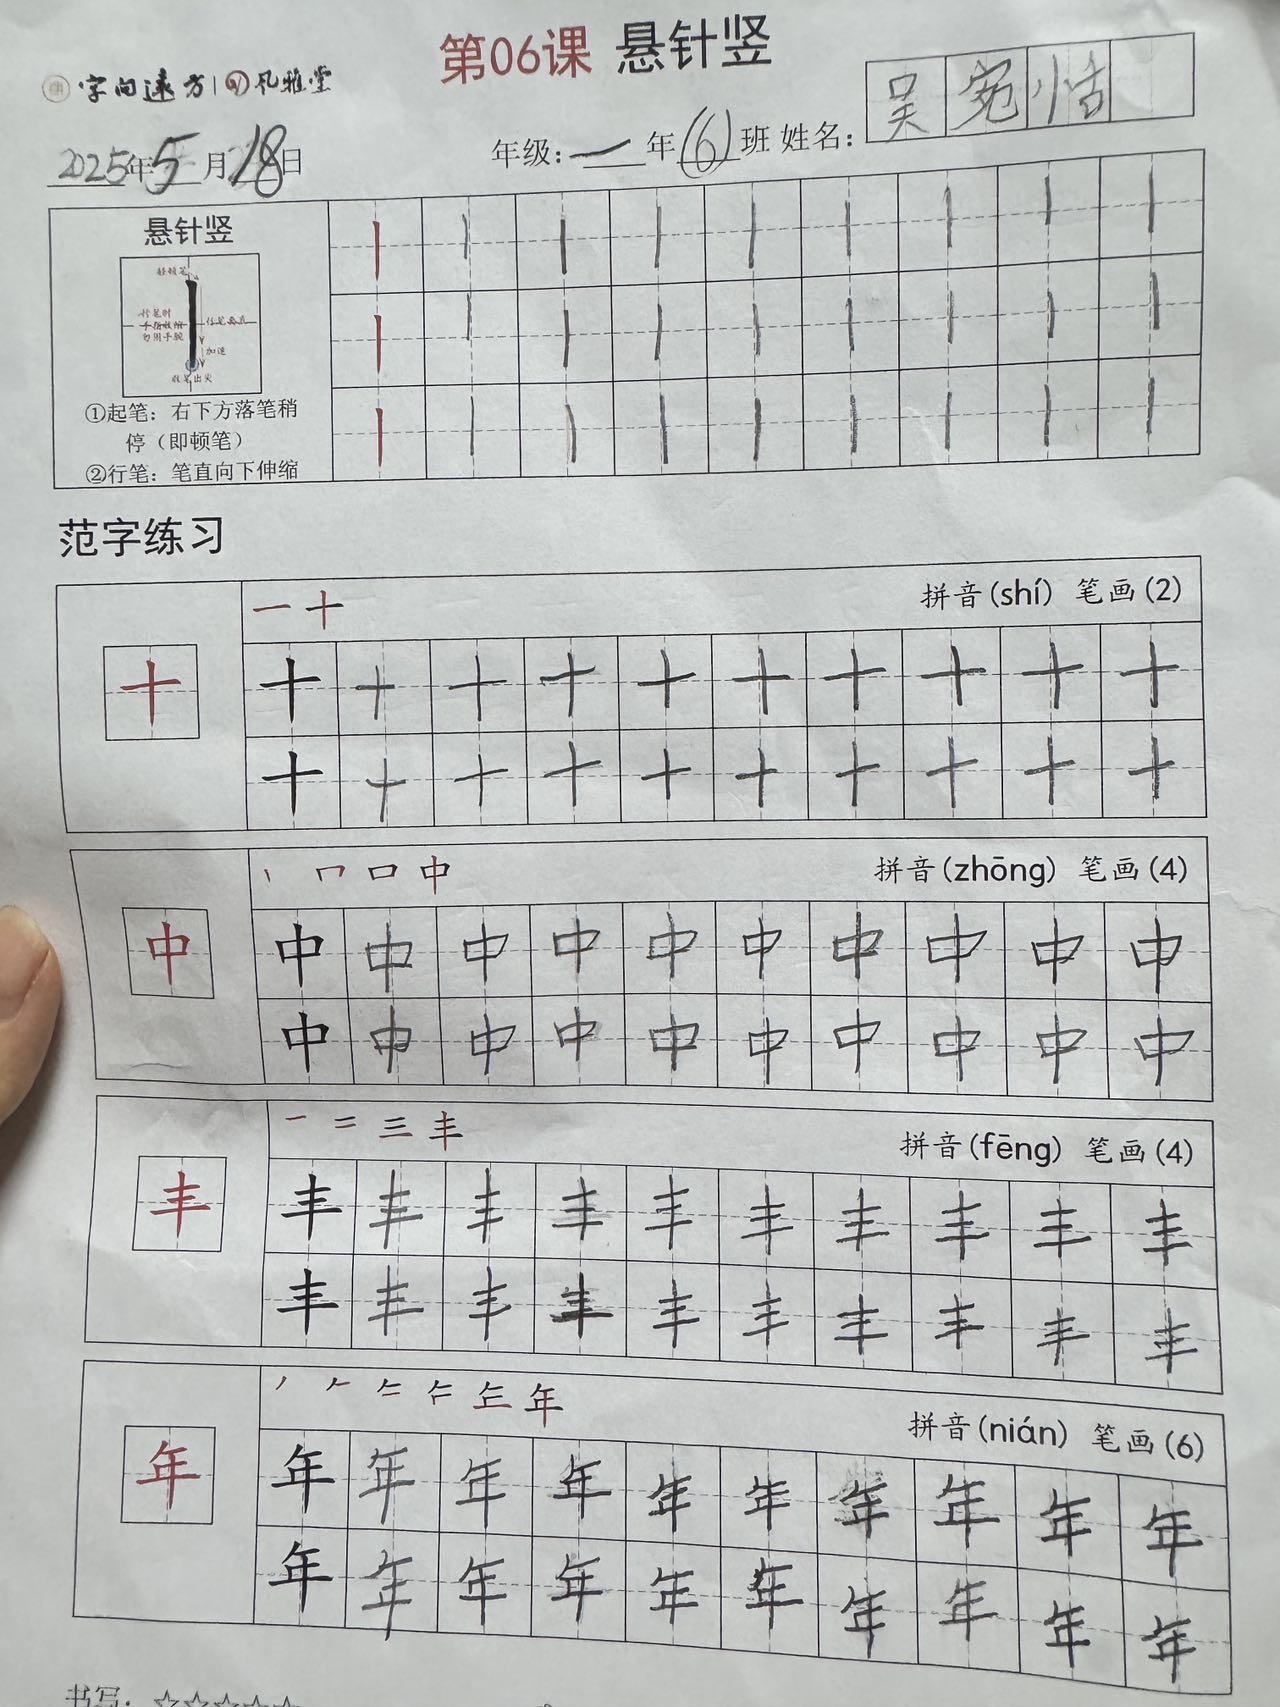 第06课 悬针竖
字向远方 风雅堂
2025年5月18日 年级:一年(6)班 姓名: 吴宛恬
悬针竖
轻顿笔
行笔时
手指收缩
勿用手腕
行笔要直
加速
收笔出尖
①起笔: 右下方落笔稍
停(即顿笔)
②行笔: 笔直向下伸缩
范字练习
一 十 拼音(shí) 笔画(2)
十 十 十 十 十 十 十 十 十 十 十
十 十 十 十 十 十 十 十 十 十
丨 冂 口 中 拼音(zhōng) 笔画(4)
中 中 中 中 中 中 中 中 中 中 中
中 中 中 中 中 中 中 中 中 中
一 二 三 丰 拼音(fēng) 笔画(4)
丰 丰 丰 丰 丰 丰 丰 丰 丰 丰 丰
丰 丰 丰 丰 丰 丰 丰 丰 丰 丰
年 拼音(nián) 笔画(6)
年 年 年 年 年 年 年 年 年 年 年
年 年 年 年 年 年 年 年 年 年
书写: ☆☆☆☆☆